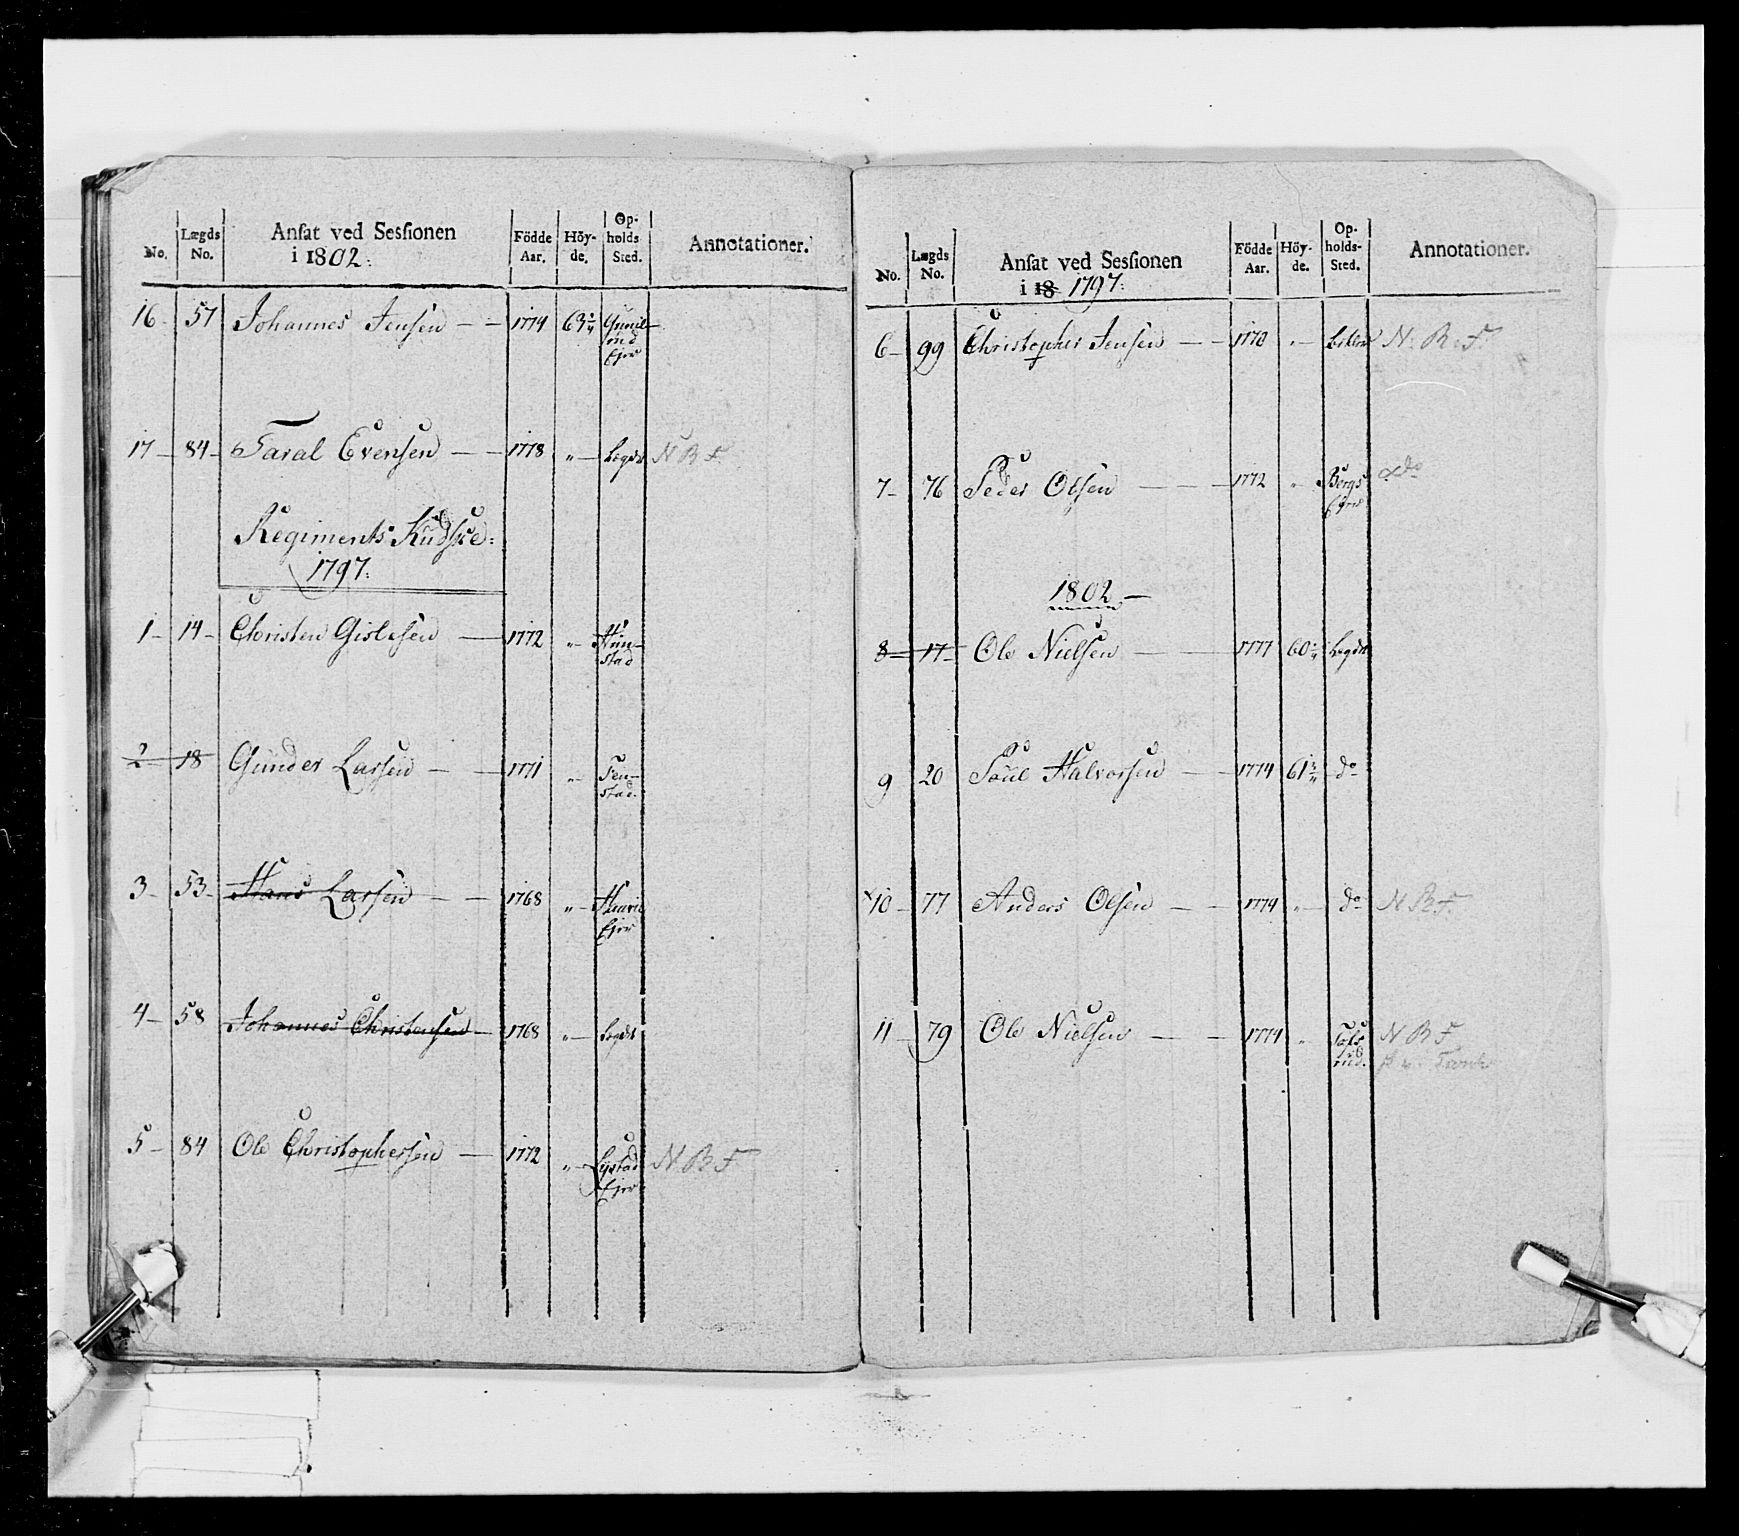 No. Lægds No. Ansat ved Sessionen i 1802. Födde Aar. Höy-de. Op-holds Sted. Annotationer.
16 57 Johannes Jensen 1774 63
17 84 Taral Evensen 1778 " Legdet N B F
Regiments Kudske
1797.
1 14 Christen Gislesen 1772 " Hun-
stad
2 18 Gunder Larsen 1771 " Fen-
stad
3 53 Hans Larsen 1768 "
Ejer
4 58 Johannes Christensen 1768 " Legdet
5 84 Ole Christophersen 1772 " Lystad N B F
Ejer
No. Lægds No. Ansat ved Sessionen i 18 1797. Födde Aar. Höy-de. Op-holds-Sted. Annotationer.
6 99 Christopher Jensen 1770 " N. B. F.
7 76 Peder Olsen 1772 " Bergs do
Ejer
1802
8 17 Ole Nielsen 1777 60 Legdet
9 20 Poul Halvorsen 1774 61 do
10 77 Anders Olsen 1774 " do N B F.
11 79 Ole Nielsen 1774 " N B F
rud.